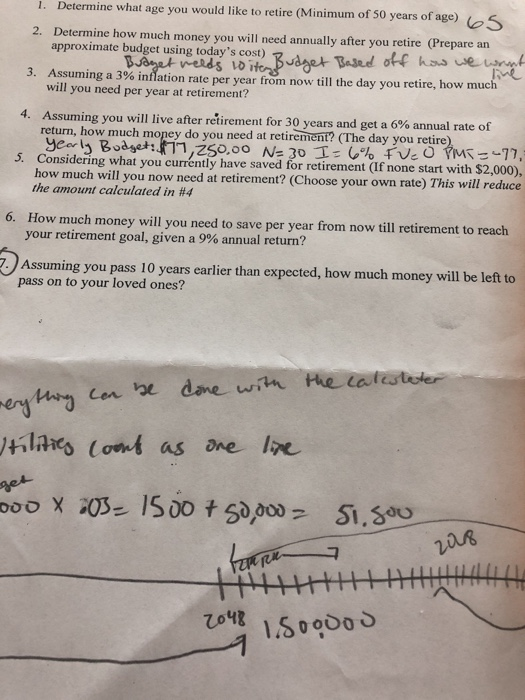 1. Determine what age you would like to retire (Minimum of 50 years of age) 65
2. Determine how much money you will need annually after you retire (Prepare an
approximate budget using today's cost)
Budget needs 10 items Budget Based off how we want
line
3. Assuming a 3% inflation rate per year from now till the day you retire, how much
will you need per year at retirement?
4. Assuming you will live after retirement for 30 years and get a 6% annual rate of
return, how much money do you need at retirement? (The day you retire)
Yearly Budget: $77,250.00 N=30 I=6% FV=0 PMT=-77,
5. Considering what you currently have saved for retirement (If none start with $2,000),
how much will you now need at retirement? (Choose your own rate) This will reduce
the amount calculated in #4
6. How much money will you need to save per year from now till retirement to reach
your retirement goal, given a 9% annual return?
7. Assuming you pass 10 years earlier than expected, how much money will be left to
pass on to your loved ones?
erything can be done with the calculater
Utilities count as one line
get
000 X .03= 1500 + 50,000 = 51.500
2018
2048 1.500,000